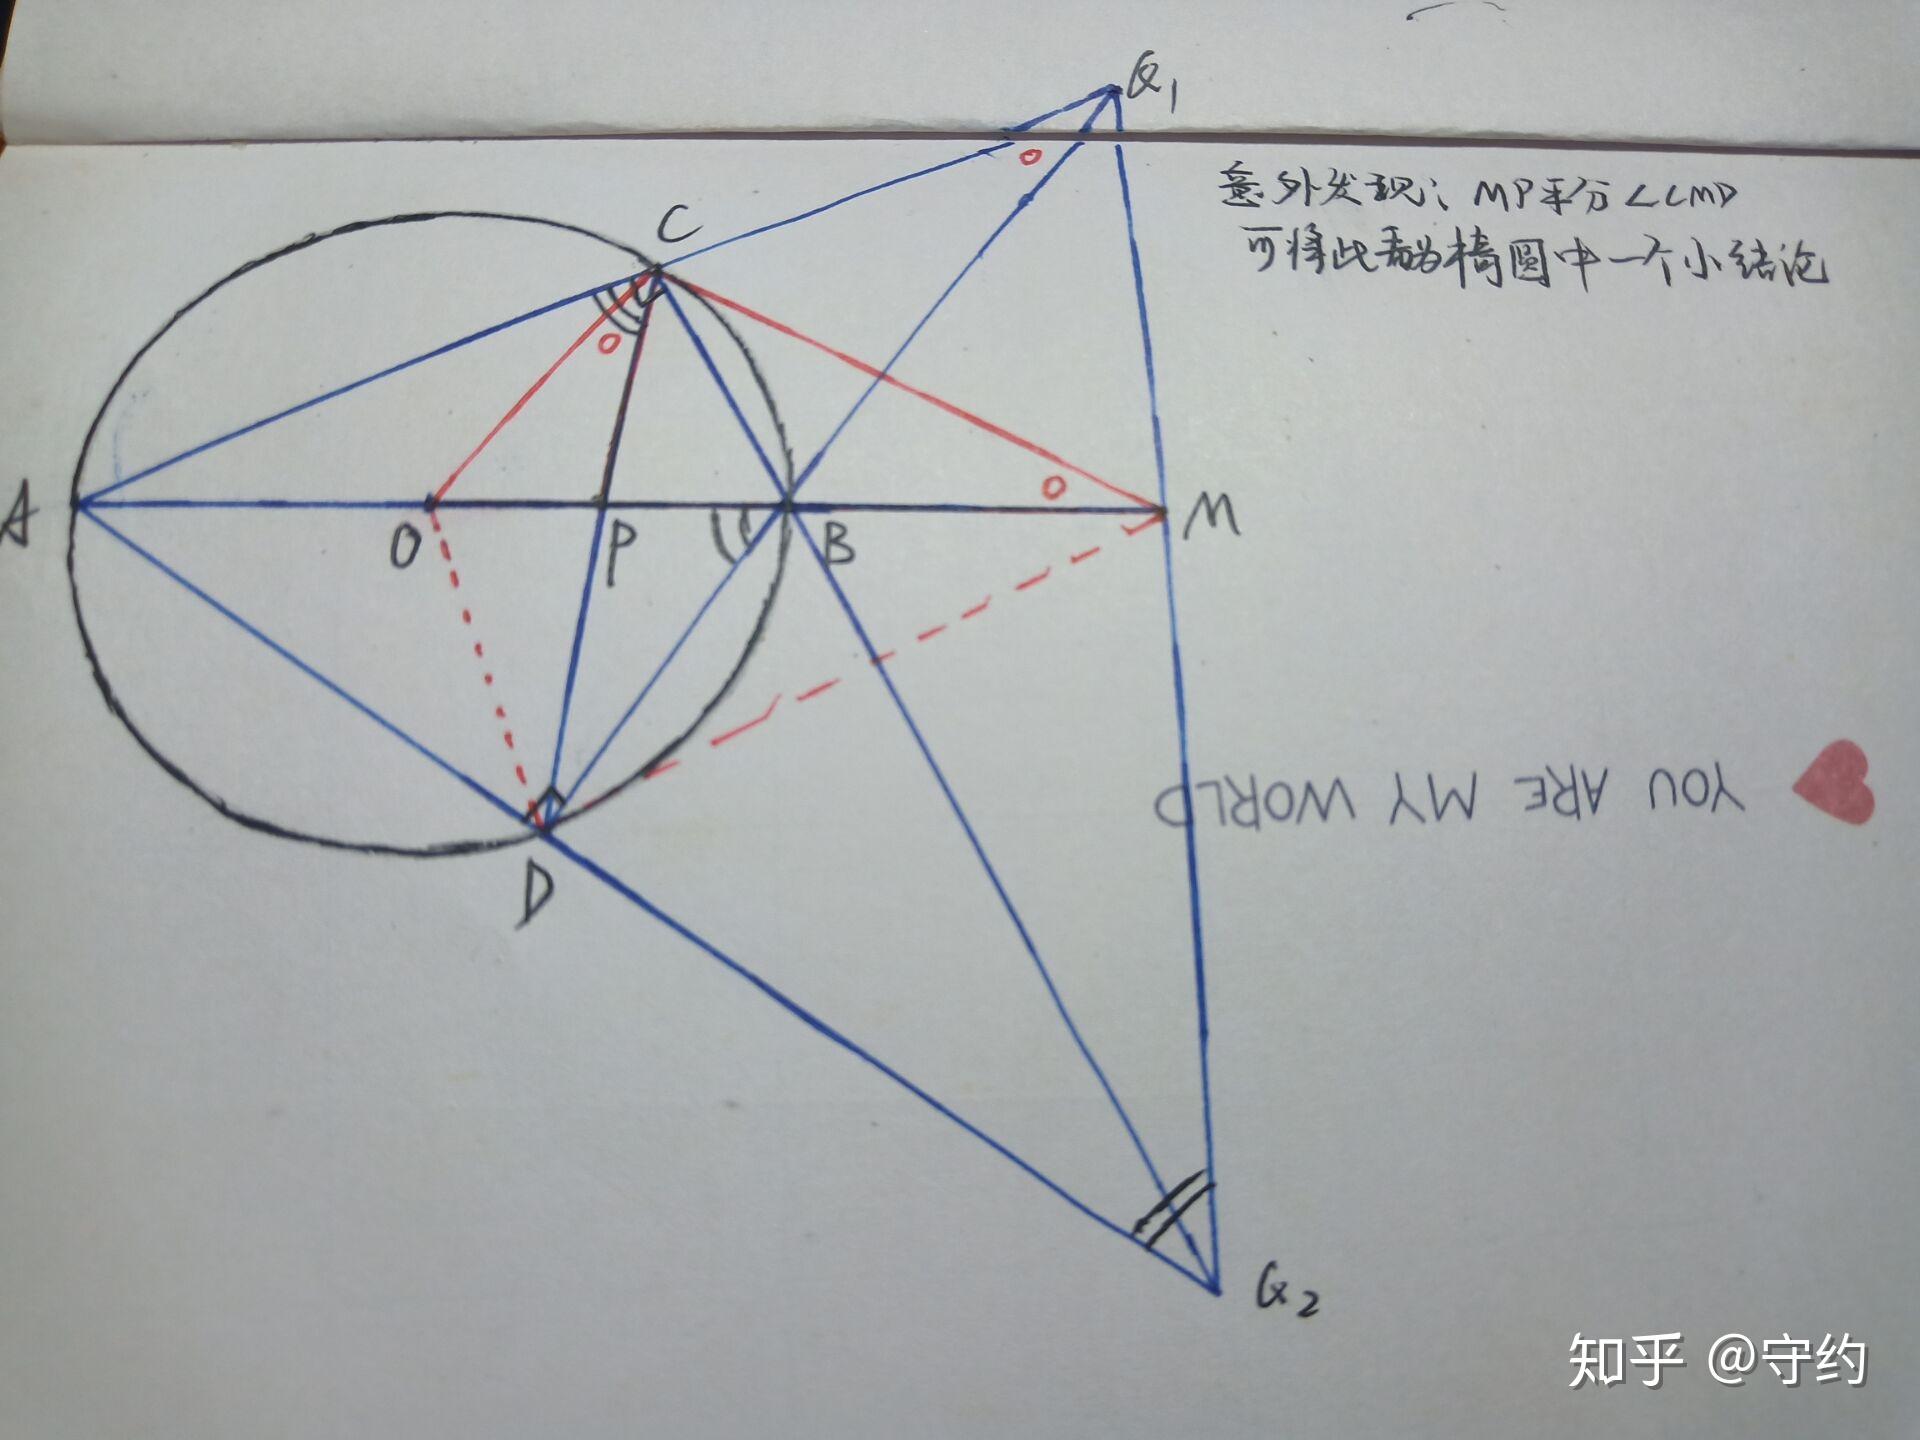 Q₁
意外发现: MP平分∠CMD
可将此看为椭圆中一个小结论
C
A
O
P
B
M
YOU ARE MY WORLD
D
Q₂
知乎 @守约